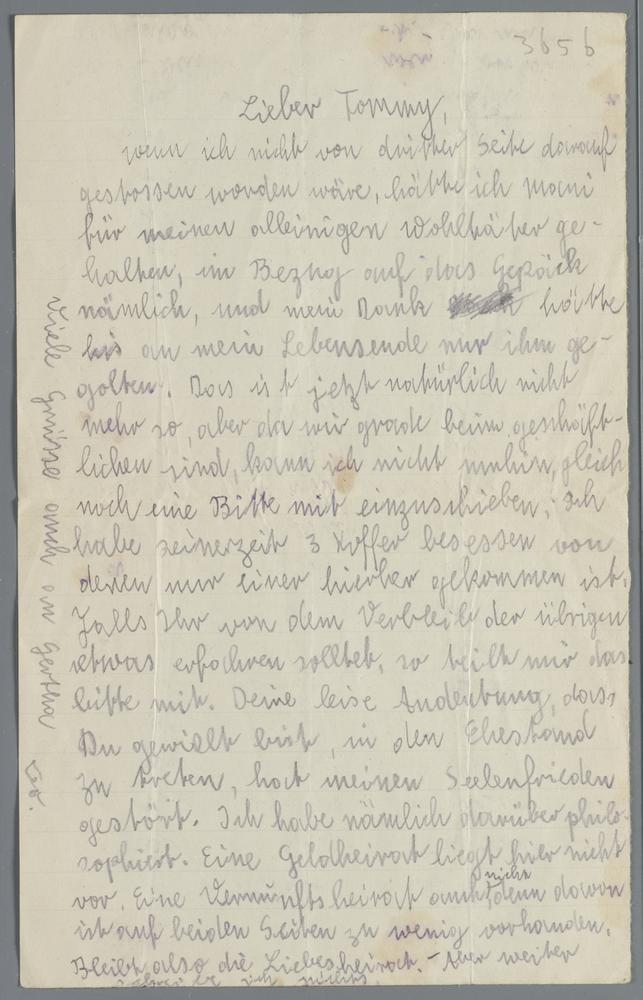 3656
Lieber Tommy,
wenn ich nicht von dritter Seite darauf
gestossen worden wäre, hätte ich Mani
für meinen alleinigen Wohltäter ge-
halten, im Bezug auf das Gepäck
nämlich, und mein Dank hätte
bis an mein Lebensende nur ihm ge-
golten. Das ist jetzt natürlich nicht
mehr so, aber da wir grade beim geschäft-
lichen sind, kann ich nicht umhin, gleich
noch eine Bitte mit einzuschieben; Ich
habe seinerzeit 3 Koffer besessen von
denen nur einer hierher gekommen ist.
Falls Ihr von dem Verbleib der übrigen
etwas erfahren solltet, so teilt mir das
bitte mit. Deine leise Andeutung, dass
Du gewillt bist, in den Ehestand
zu treten, hat meinen Seelenfrieden
gestört. Ich habe nämlich darüber philo-
sophiert. Eine Geldheirat liegt hier nicht
vor. Eine Vernunftsheirat auch nicht denn davon
ist auf beiden Seiten zu wenig vorhanden.
Bleibt also die Liebesheirat. - Aber weiter
ich nichts
Viele Grüsse auch an Gertha